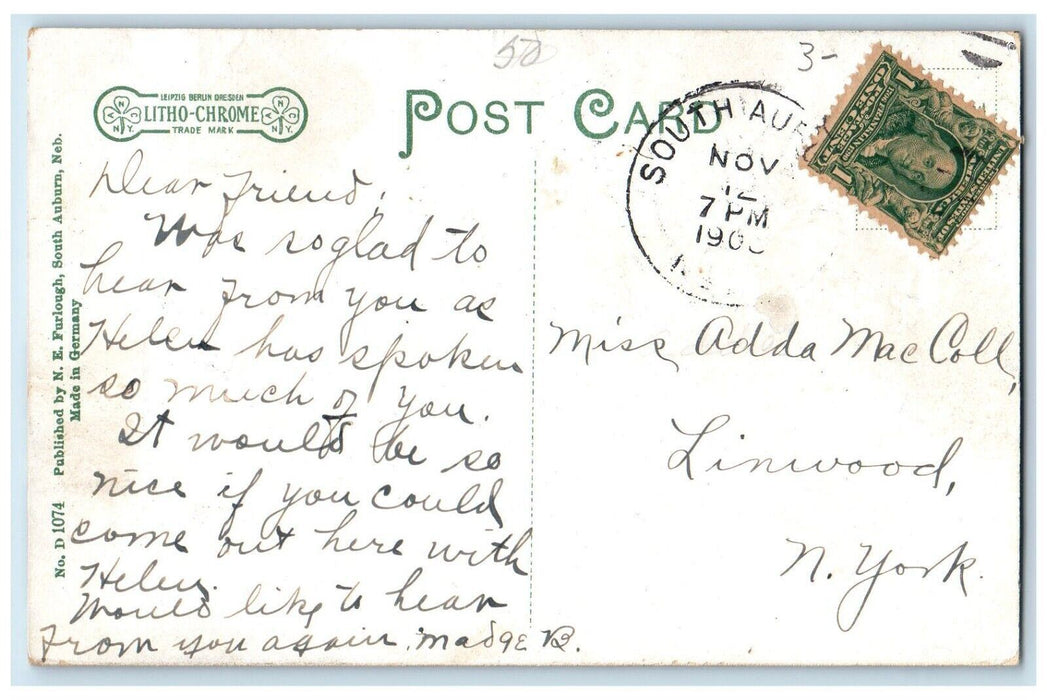 50
3-
LEIPZIG BERLIN DRESDEN
LITHO-CHROME
TRADE MARK
N N
N.Y. N.Y.
POST CARD
SOUTH AUB
NOV
12
7 PM
190
N
1 1
No. D 1074 Published by N. E. Furlough, South Auburn, Neb.
Made in Germany
Dear Friend,
Was so glad to
hear from you as
Helen has spoken
so much of you.
It would be so
nice if you could
come out here with
Helen.
Would like to hear
from you again. Madge B.
Miss Adda Mac Coll,
Linwood,
N. York.